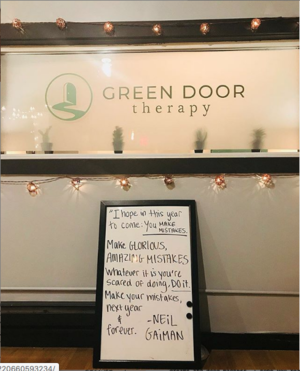 GREEN DOOR
therapy
"I hope in this year
to come. You MAKE
MISTAKES.
Make GLORIOUS,
AMAZING MISTAKES
Whatever it is you're
scared of doing, DO it.
Make your mistakes,
next year
&
forever.
-NEIL
GAIMAN
220660593234/